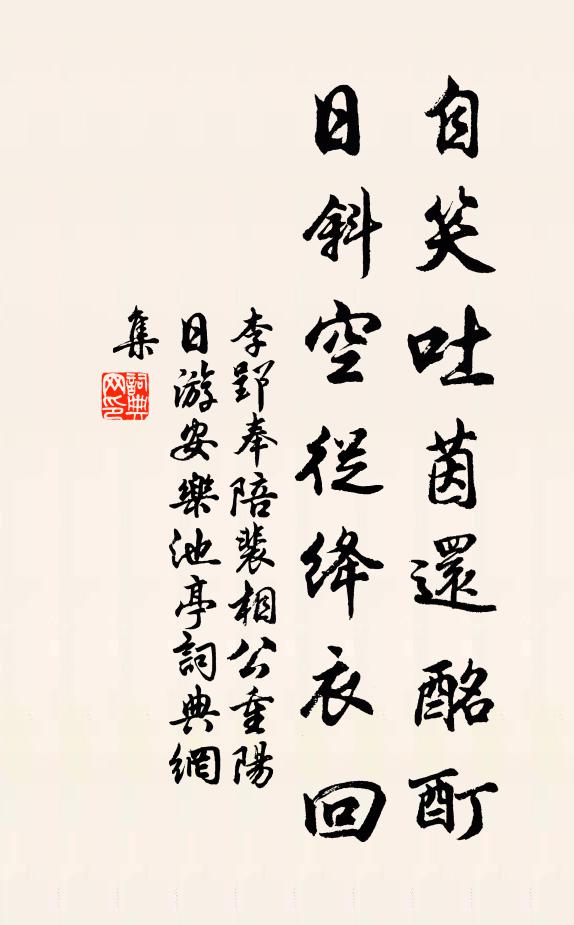 自笑吐茵還酩酊
日斜空從絳衣回
李郢奉陪裴相公重陽
日游安樂池亭詞典網
集
詞典
网印